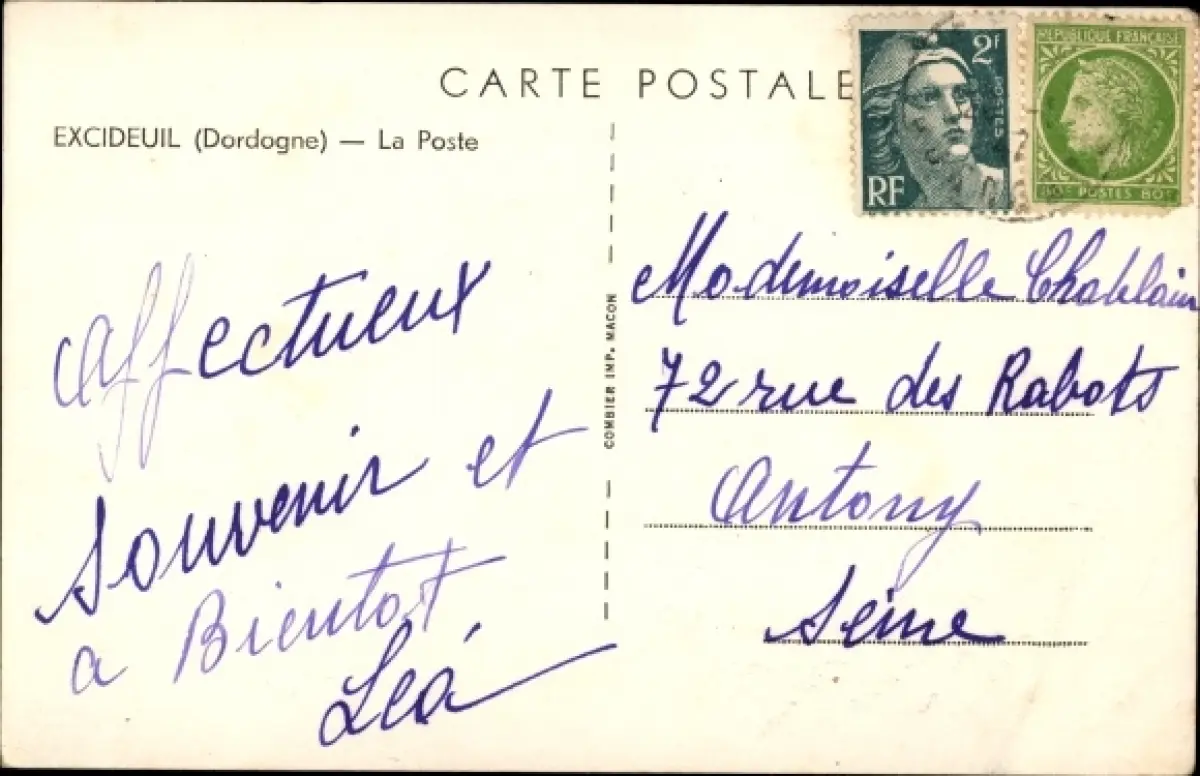 CARTE POSTALE
EXCIDEUIL (Dordogne) — La Poste
2F
POSTES
RF
REPUBLIQUE FRANÇAISE
80c POSTES 80c
Affectueux
Souvenir et
a Bientot
Léa
COMBIER IMP. MACON
Mademoiselle Chablain
72 rue des Rabots
Antony
Seine